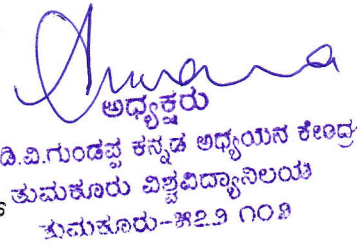 ಅಧ್ಯಕ್ಷರು
ಡಿ.ವಿ.ಗುಂಡಪ್ಪ ಕನ್ನಡ ಅಧ್ಯಯನ ಕೇಂದ್ರ
ತುಮಕೂರು ವಿಶ್ವವಿದ್ಯಾನಿಲಯ
ತುಮಕೂರು-೫೭೨ ೧೦೩